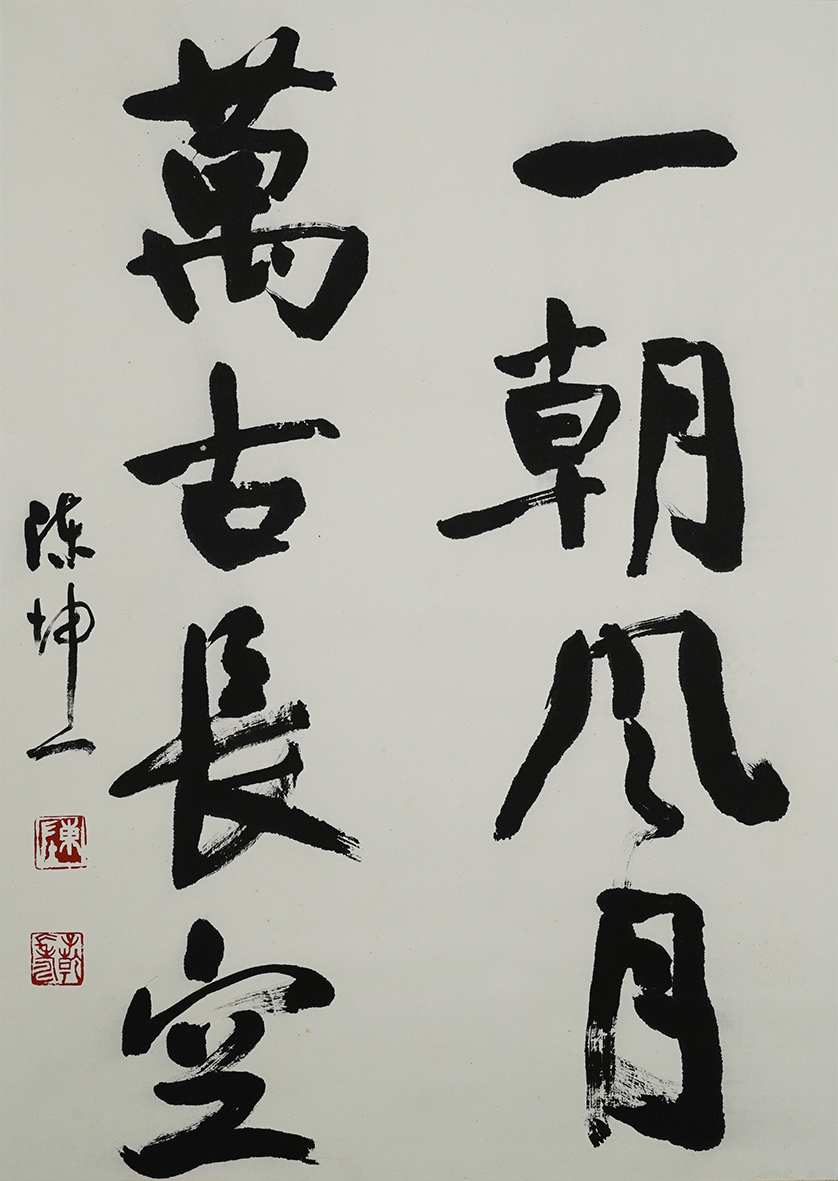 一朝風月
萬古長空
陳坤一
陳